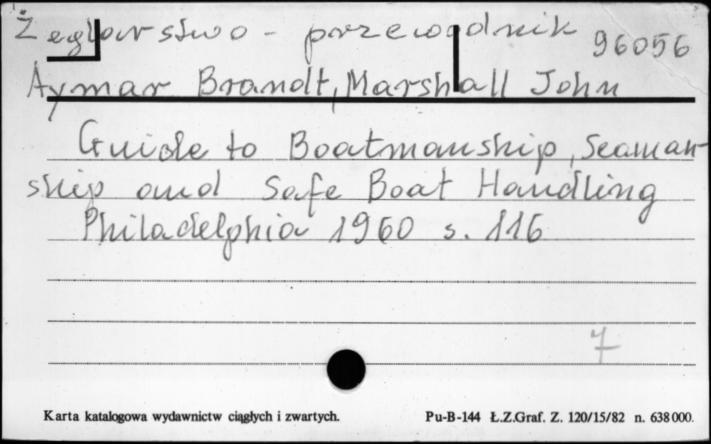 Żeglarstwo - przewodnik 96056
Aymar Brandt, Marshall John
Guide to Boatmanship, Seaman-
ship and Safe Boat Handling
Philadelphia 1960 s. 116
7
Karta katalogowa wydawnictw ciągłych i zwartych. Pu-B-144 Ł.Z.Graf. Z. 120/15/82 n. 638000.